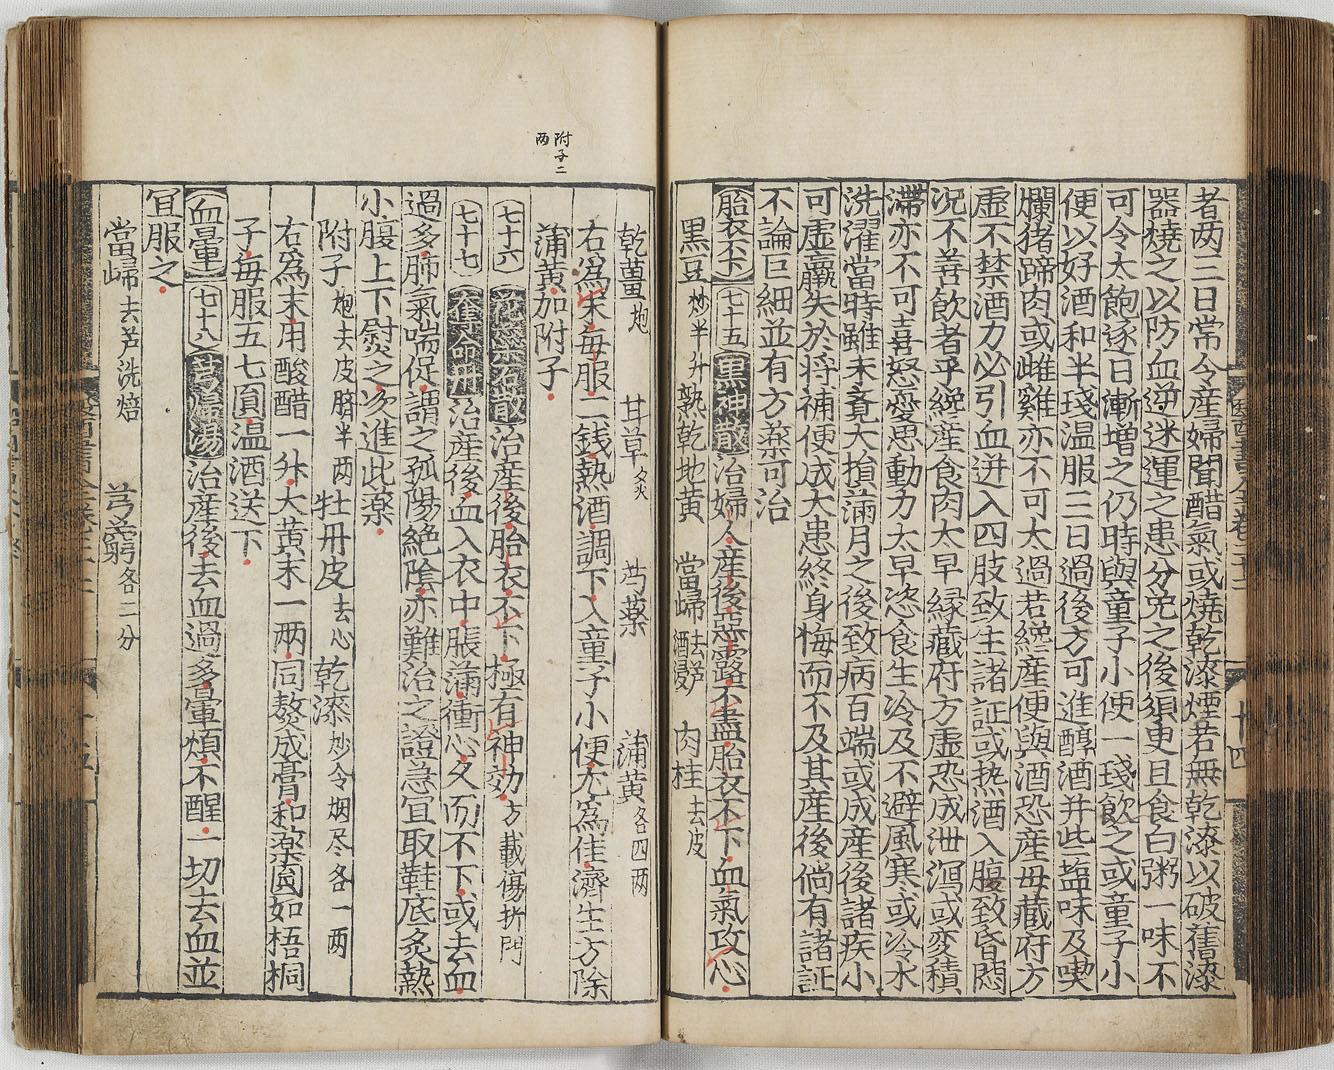 者两三日常令産婦聞醋氣或燒乾漆煙若無乾漆以破舊漆
器燒之以防血逆迷運之患分免之後須更且食白粥一味不
可令太飽逐日漸増之仍時與童子小便一琖飲之或童子小
便以好酒和半琖温服三日過後方可進醇酒并些塩味及喫
爛猪蹄肉或雌雞亦不可太過若纔産便與酒恐産母藏府方
虚不禁酒力必引血迸入四肢致生諸証或热酒入腹致昏悶
况不善飲者乎纔産食肉太早緣藏府方虚恐成泄瀉或変積
滯亦不可喜怒憂思動力太早恣食生冷及不避風寒或冷水
洗濯當時雖未覺大損滿月之後致病百端或成産後諸疾小
可虚羸失於将補便成大患終身悔而不及其産後倘有諸証
不論巨細並有方薬可治
胎衣不下 七十五 黒神散 治婦人産後惡露不盡胎衣不下血氣攻心
黒豆炒半升 熟乾地黄 當歸去芦酒浸 肉桂去皮
乾薑炮 甘草炙 芍薬 蒲黄各四两
附子二两
右爲末毎服二銭熱酒調下入童子小便尤爲佳濟生方除
蒲黄加附子
七十六 花蘂石散 治産後胎衣不下極有神効方載傷折門
七十七 奪命丹 治産後血入衣中脹滿衝心久而不下或去血
過多肺氣喘促謂之孤陽絶陰亦難治之證急宜取鞋底炙熱
小腹上下熨之次進此薬
附子炮去皮臍半两 牡丹皮去心 乾漆炒令烟尽各一两
右爲末用酸醋一升大黄末一两同熬成膏和薬圓如梧桐
子毎服五七圓温酒送下
血暈 七十八 芎歸湯 治産後去血過多暈煩不醒一切去血並
宜服之
當歸去芦洗焙 芎藭各二分